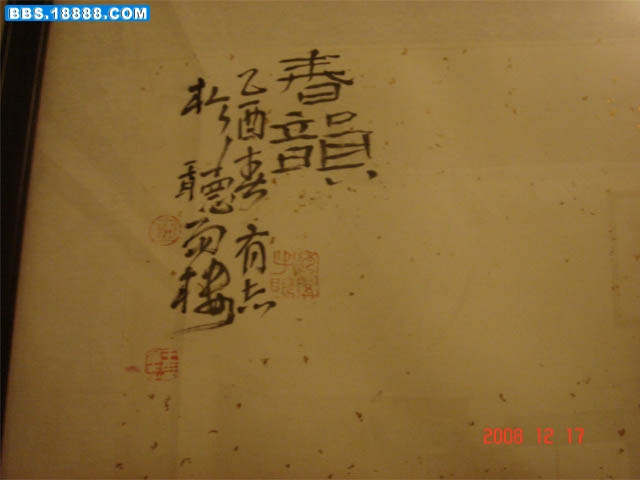 BBS.18888.COM
春韻
乙酉春有志
於聽雨樓
2008 12 17